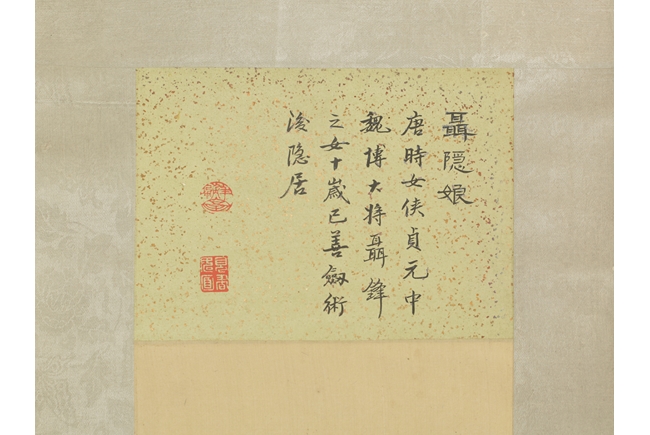 聶隱娘
唐時女俠貞元中
魏博大将聶鋒
之女十歲已善劔術
後隐居